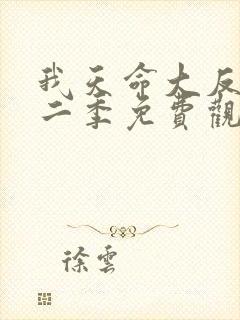 我天命大反
二季免費觀
徐雲